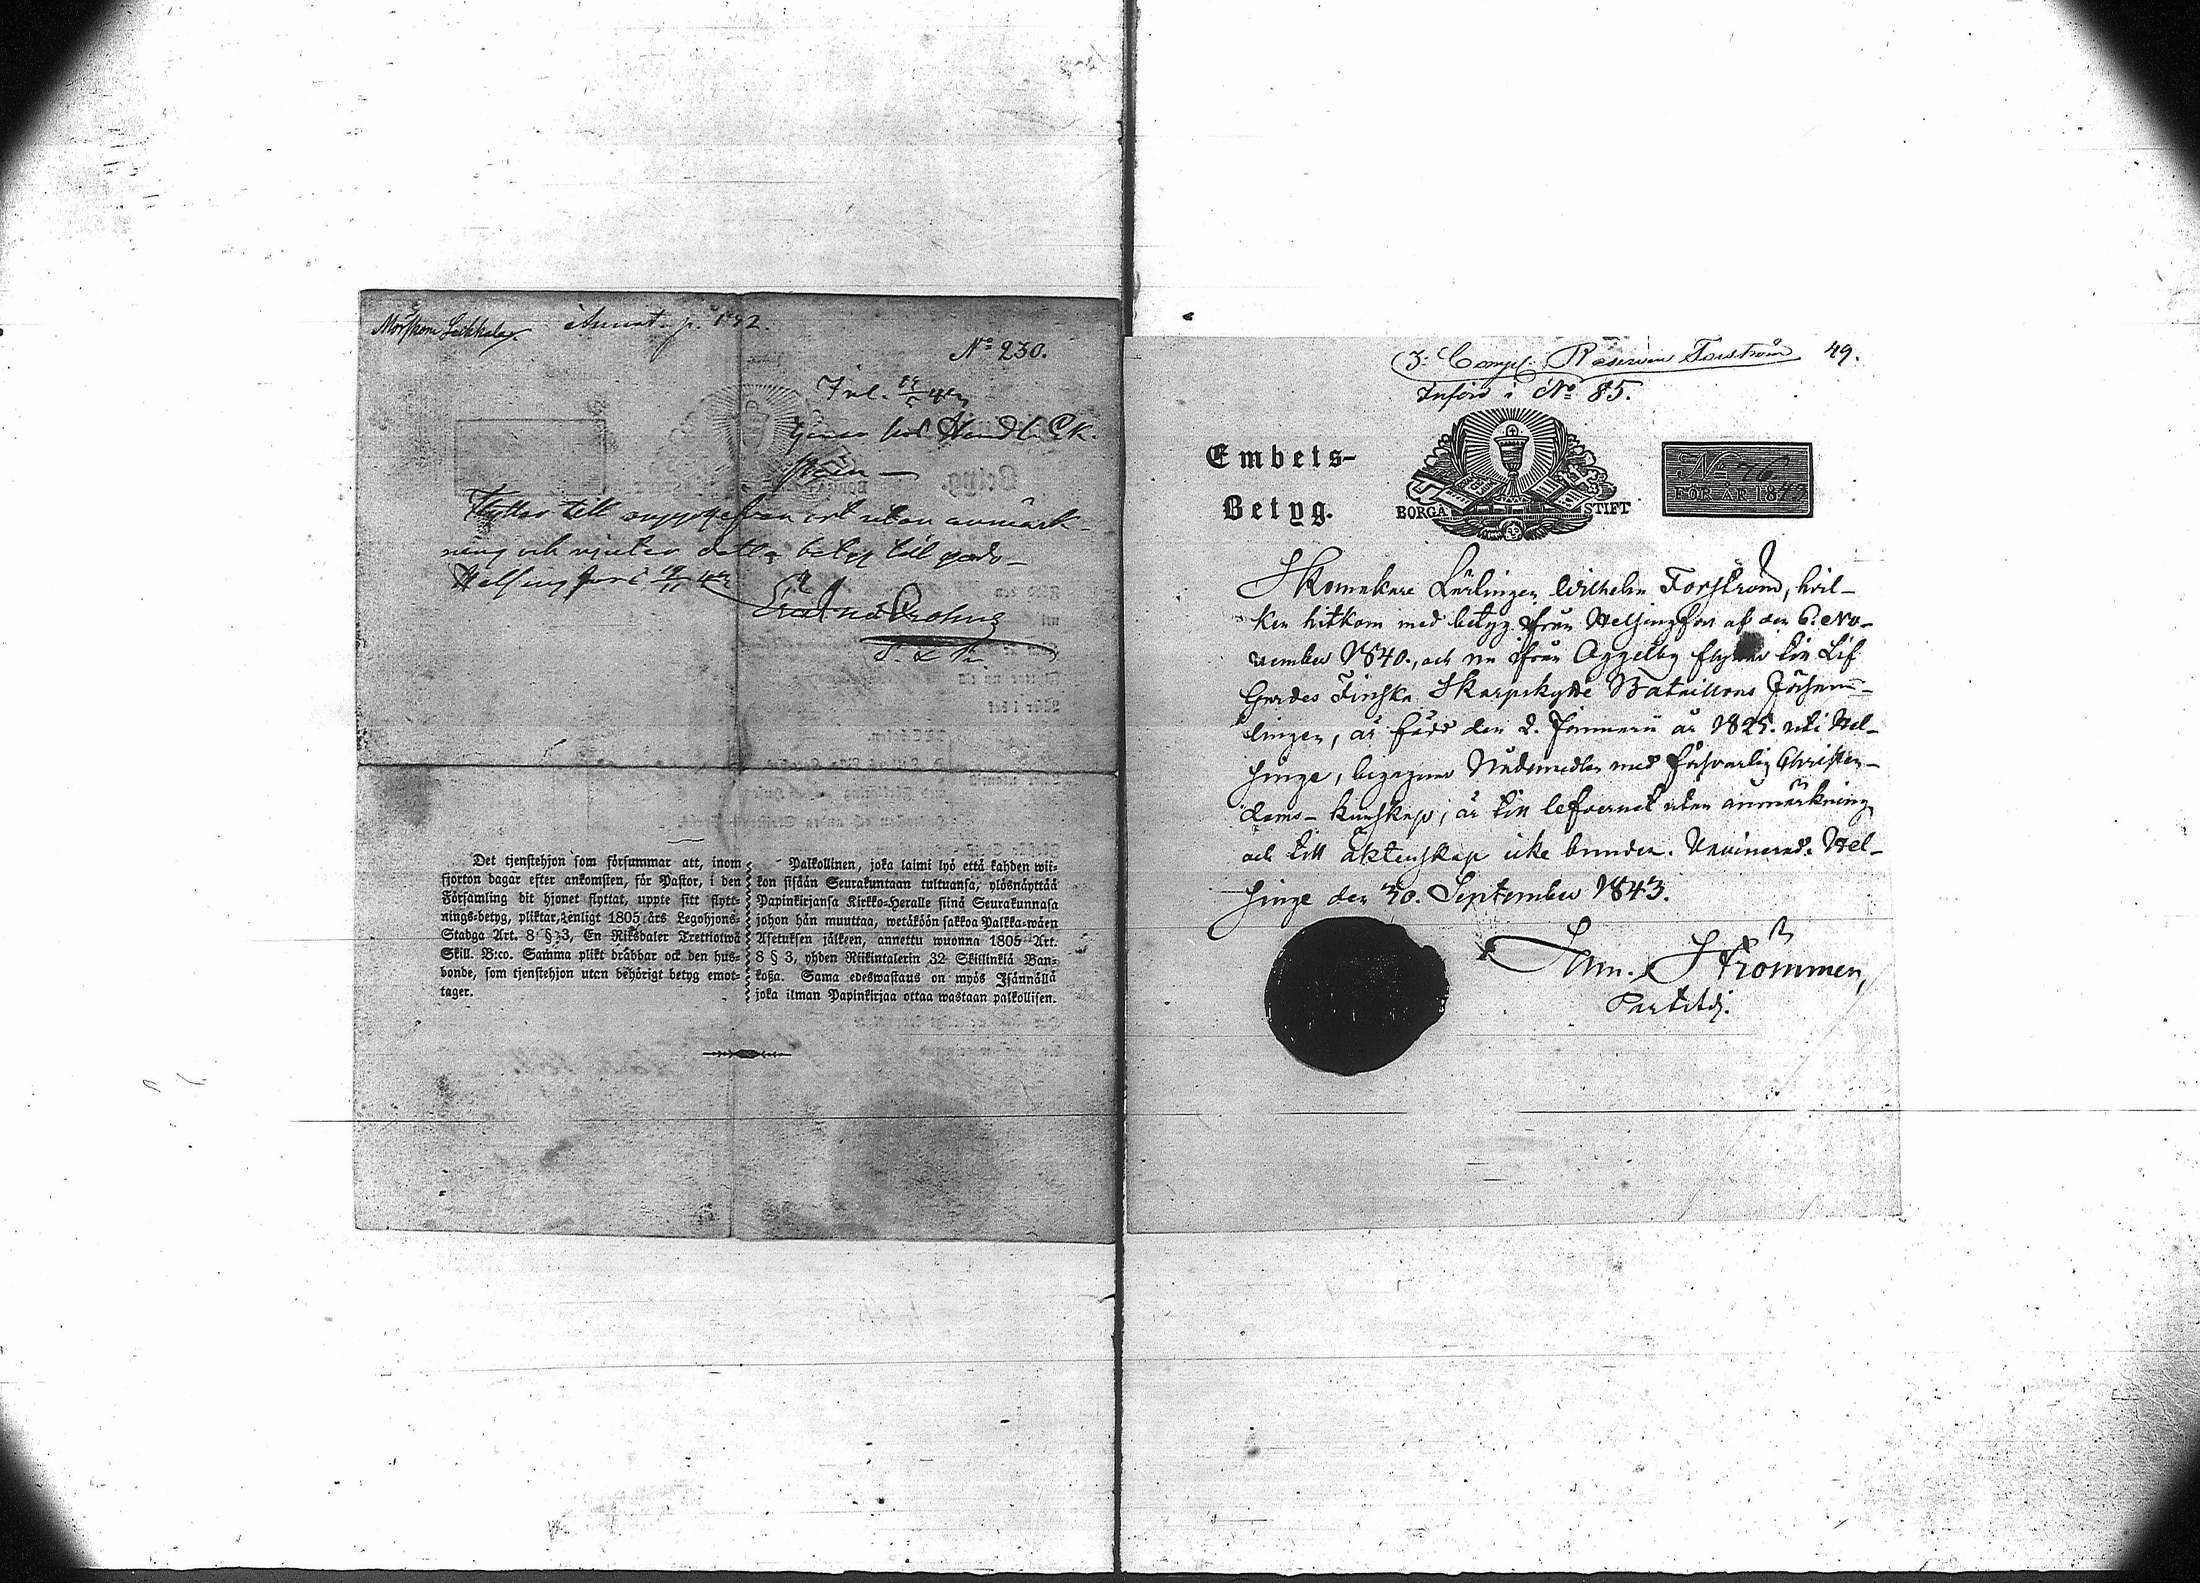 Mörskom Labbala
Annot. p. 142.
No 230.
Inl.
tjenar hos Handl. Ek-
ström —
Flyttar till uppgifven ort utan anmärk-
ning och njuter detta betyg till godo —
Helsingfors
Erland Crohns
Det tjenstehjon som försummar att, inom
fjorton dagar efter ankomsten, för Pastor, i den
Församling dit hjonet flyttat, uppte sitt flytt-
nings-betyg, pliktar, enligt 1805 års Legohjons-
Stadga Art. 8 § 3, En Riksdaler Trettiotwå
Skill. B:co. Samma plikt drabbar ock den hus-
bonde, som tjenstehjon utan behörigt betyg emot-
tager.
Palkollinen, joka laimi lyö että kahden wii-
kon sisään Seurakuntaan tultuansa, ylösnäyttää
Papinkirjansa Kirkko-Heralle siinä Seurakunnasa
johon hän muuttaa, wetäköön sakkoa Palkka-wäen
Asetuksen jälkeen, annettu wuonna 1805 Art.
8 § 3, yhden Riikintalerin 32 Skillinkiä Ban-
koßa. Sama edeswastaus on myös Isännällä
joka ilman Papinkirjaa ottaa wastaan palkollisen.
3. Comp. Reserven Forström 49.
Införd i No 85.
Embets-
Betyg.
BORGÅ STIFT
No 76
FÖR ÅR 1843
Skomakare Lärlingen Wilhelm Forström, hvil-
ken hitkom med betyg från Helsingfors af den 6. No-
vember 1840., och nu från Åggelby flyttar till Lif
Gardes Finska Skarpskytte Bataillons Försam-
lingen, är född den 2. Januarii år 1825. uti Hel-
singe, begagnar Nådemedlen med försvarlig Christen-
doms-kunskap, är till lefvernet utan anmärkning
och till äktenskap icke bunden. Vaccinerad. Hel-
singe den 30. September 1843.
Sam. Strömmer,